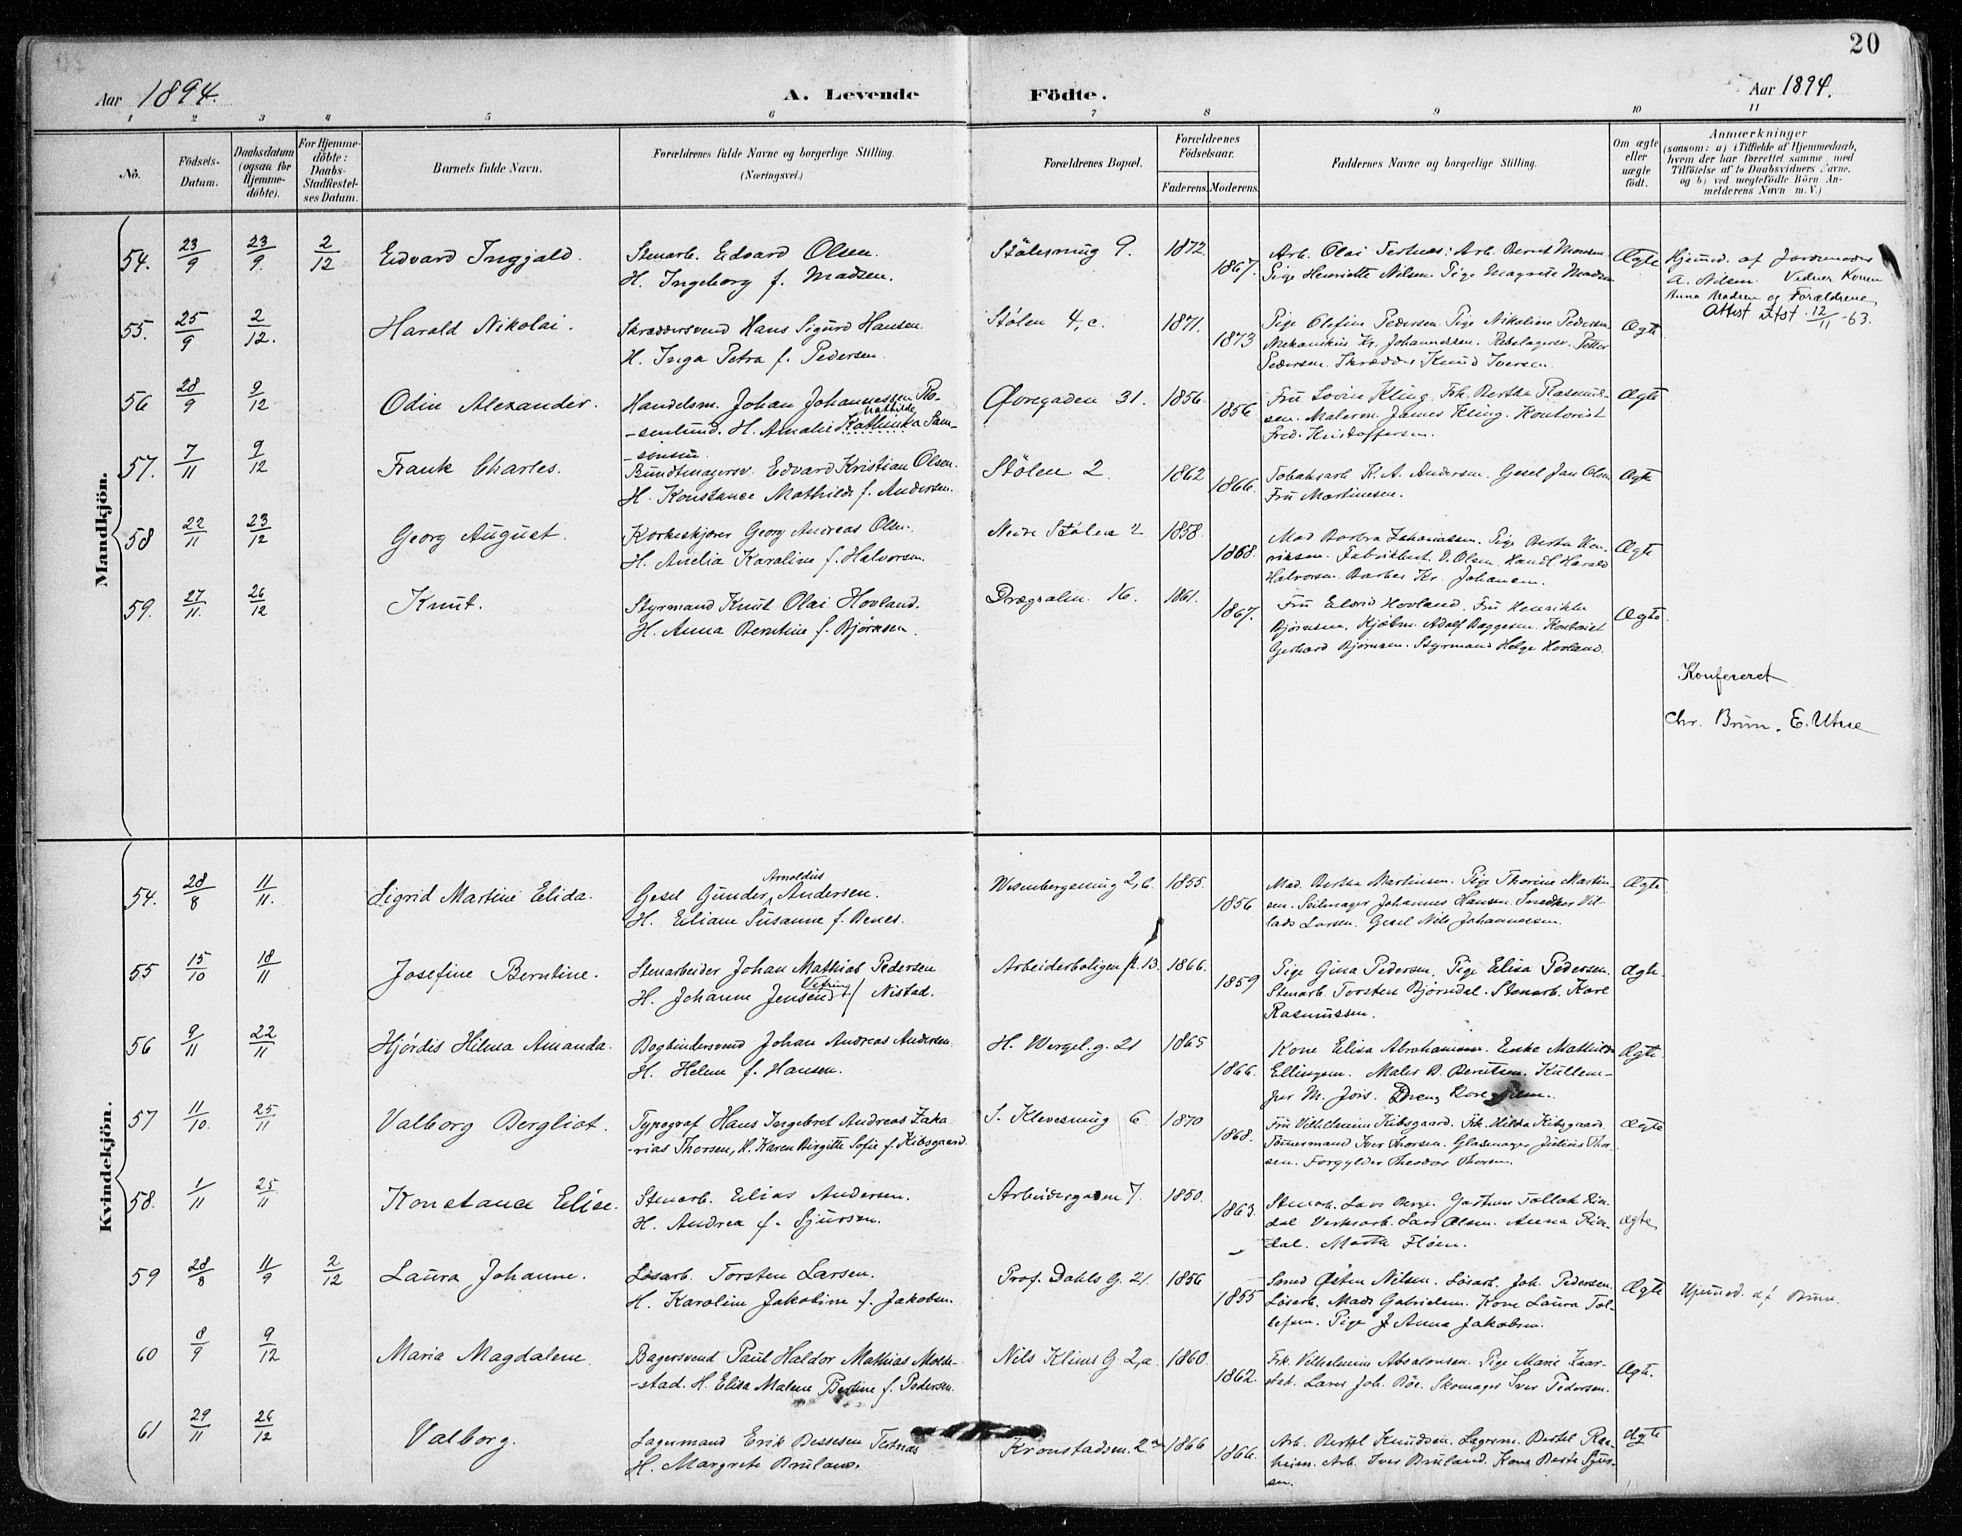 20
Aar 1894.
A. Levende Födte.
Aar 1894.
1 2 3 4 5 6 7 8 9 10 11
No.
Födsels-Datum.
Daabsdatum (ogsaa for Hjemme-döbte).
For Hjemme-döbte: Daabs-Stadfæstel-ses Datum.
Barnets fulde Navn.
Forældrenes fulde Navne og borgerlige Stilling. (Næringsvei.)
Forældrenes Bopæl.
Forældrenes Födselsaar.
Faderens. Moderens.
Faddernes Navne og borgerlige Stilling.
Om ægte eller uægte födt.
Anmærkninger
(saasom: a) i Tilfælde af Hjemmedaab,
hvem der har forrettet samme, med
Tilföielse af to Daabsvidners Navne,
og b) ved uægtefödte Börn An-
melderens Navn m. V.)
Mandkjön.
54. 23/9 23/9. 2/12 Edvard Ingjald. Stenarb. Edvard Olsen. Stølesmug 9. 1872. Arb. Olai Testnes: Arb. Bernt Monsen Ægte Hjemmed. af Jordemoder
H. Ingeborg f. Madsen. 1867. Pige Henriette Nilsen. Pige Magnete Madsen A. Nilsen. Vidner Konen
Anna Madsen og Forældrene.
Attest Utst 12/11-63.
55. 25/9 2/12. Harald Nikolai. Skræddersvend Hans Sigurd Hansen. Stølen 4, c. 1871. Pige Olefine Pedersen. Pige Nikoline Pedersen. Ægte
H. Inga Petra f. Pedersen. 1873 Mekanikus Kr. Johannessen. Rebslagersv. Petter
Pedersen. Skrædder Knud Iversen.
56 28/9 9/12 Odin Alexander. Handelsm. Johan Johannessen Ro- Øvregaden 31. 1856. Fru Lovin Kling. Frk. Bertha Rasmus- Ægte
Mathilde
-senlund. H. Amalie Kathinka Sam- 1856 sen. Malerm. James Kling. Kontorist
-sonsen Fred. Kristoffersen.
57. 7/11 9/12 Frank Charles. Bundtmagersv. Edvard Kristian Olsen. Stølen 2. 1862 Tobaksarb K. A. Andersen. Gesel Jan Olsen Ægte
H. Konstance Mathilde f. Andersen. 1866. Fru Martinsen.
58 22/11 23/12 Georg August. Korkeskjærer Georg Andreas Olsen. Nedre Stølen 2 1858. Mad Barbra Zahariassen. Pige Bertha Hen- Ægte
H. Amelia Karoline f. Halvorsen. 1868. riksen. Fabrikbest. D. Olsen. Handl. Harald
Halvorsen. Barber Kr. Johansen.
59. 27/11. 26/12 Knut. Styrmand Knut Olai Hovland. Drægralm. 16. 1861. Fru Elvrid Hovland. Fru Henrikke Ægte.
H. Anna Berntine f. Bjørnsen. 1867. Bjørnsen. Kjøbm. Adolf Baggesen. Kontorist
Gerhard Bjørnsen. Styrmand Helge Hovland.
Konfereret
Chr. Brun. E. Utne
Kvindekjön.
54. 28/8 11/11. Sigrid Martine Elida. Gesel Gunder Arnoldus Andersen. Wesenbergsmug 2, c. 1855. Mad. Bertha Martinsen. Pige Thorine Martin- Ægte
H. Eliane Susanne f. Benes. 1856 sen. Seilmager Johannes Hansen. Snedker Vil-
lads Larsen. Gesel Nils Johannessen.
55 15/10 18/11 Josefine Berntine. Stenarbeider Johan Mathias Pedersen Arbeiderboligen 13. 1866. Pige Gina Pedersen. Pige Elisa Pedersen. Ægte.
H. Johanne Jensen f. Nistad. 1859 Stenarb. Torsten Bjørndal. Stenarb. Karl
Rasmussen.
56 9/11 22/11 Hjørdis Helma Amanda. Bogbindersvend Johan Andreas Andersen. H. Wergel. g. 21 1865 Kone Elisa Abrahamsen. Enke Mathilde Ægte.
H. Helene f. Hansen. 1866. Ellingsen. Maler B. Berntsen. Kullem-
57 11/10 25/11 Valborg Bergliot. Typograf Hans Ingebret Andreas Zaka- S. Klevesmug 6 1870 Fru Vilhelmine Kibsgaard. Frk. Hilda Kibsgaard. Ægte
-rias Thorsen, H. Karen Birgitte Sofie f. Kibsgaard. 1868. Tømmermand Iver Thorsen. Glasmager Julius Thor-
sen. Forgylder Theodor Thorsen.
58. 1/11 25/11 Konstance Elise. Stenarb. Elias Andersen. Arbeidergaden 7. 1850. Stenarb. Lars Berge. Gartner Tollak Rin-
H. Andrea f. Sjursen. 1863. dal. Verksarb. Lars Olsen. Anna Rin- ægte,
dal. Marta Fløen.
59 28/8 11/9 2/12 Laura Johanne. Løsarb. Torsten Larsen. Prof. Dahls G. 21. 1856 Smed Østen Nilsen. Løsarb. Joh. Pedersen. Ægte Hjemmed. af Brun.
H. Karoline Jakobine f. Jakobsen. 1855 Løsarb. Mads Gabrielsen. Kone Laura Tol-
lefsen. Pige J Anna Jakobsen.
60 8/9 9/12 Maria Magdalene. Bagersvend Paul Haldor Mathias Molde- Nils Klims G 2, a. 1860. Frk. Vilhelmine Absalonsen. Pige Marie Kaar- Ægte.
-stad. H. Elisa Malene Bertine f. Pedersen. 1862. stad. Lars Joh. Bøe. Skomager Iver Pedersen.
61 29/11 26/12 Valborg. Lagermand Erik Bessesen Testnes Kronstadsm. 2 a 1866 Arb. Bertel Knudsen. Lagerm. Bertel Ras- Ægte
H. Margrete Bruland. 1866. heim. Arb. Iver Bruland. Kone Berte Sjur-
sen.